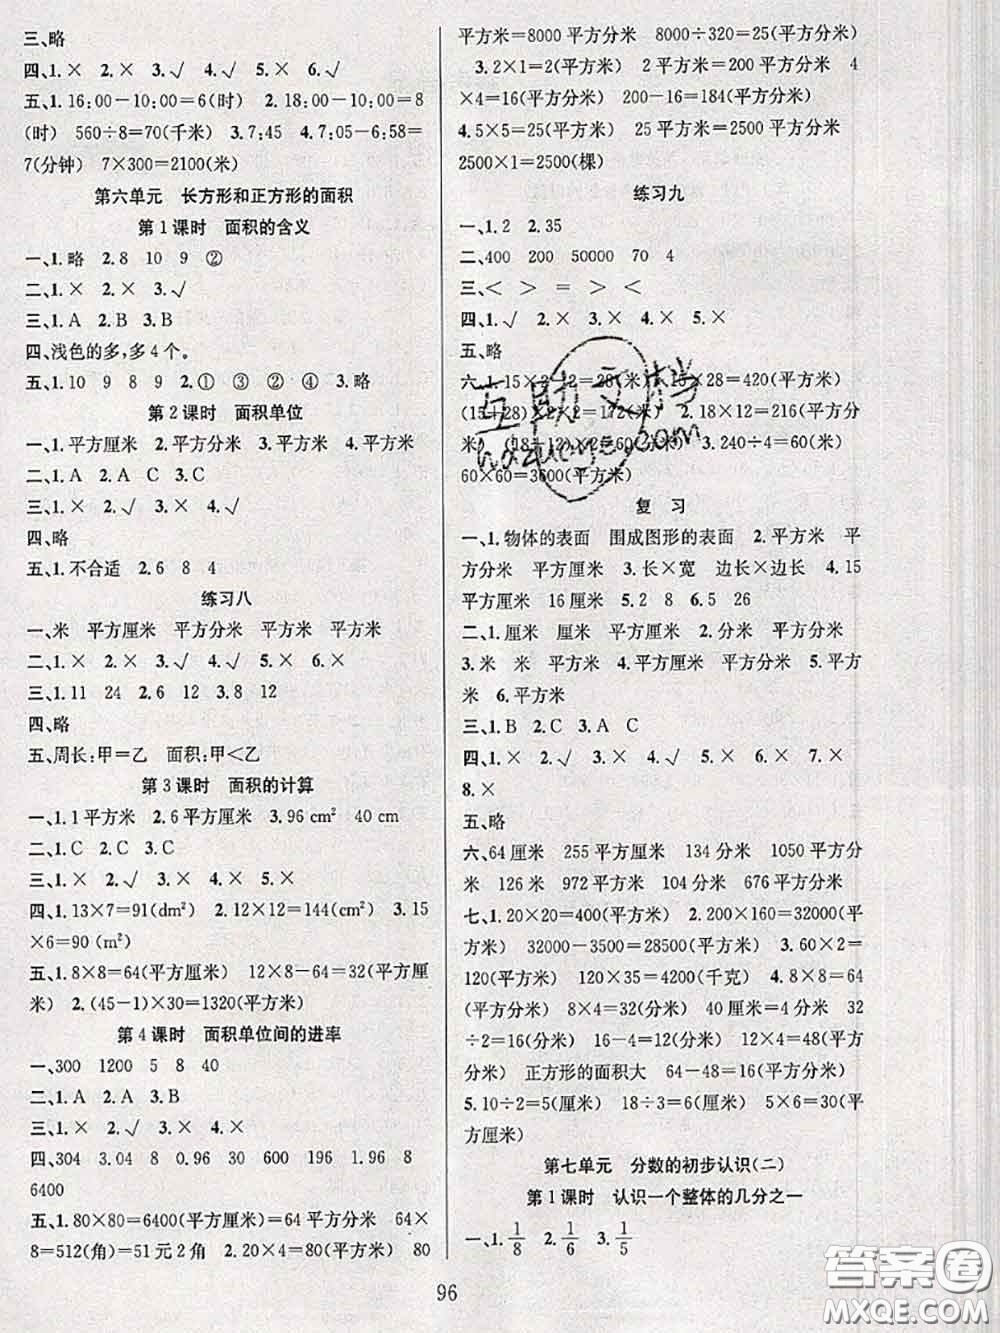 三、略
四、1.× 2.× 3.√ 4.√ 5.× 6.√
五、1.16:00－10:00＝6(时) 2.18:00－10:00＝8
(时) 560÷8＝70(千米) 3.7:45 4.7:05－6:58＝
7(分钟) 7×300＝2100(米)
第六单元 长方形和正方形的面积
第1课时 面积的含义
一、1.略 2.8 10 9 ②
二、1.× 2.× 3.√
三、1.A 2.B 3.B
四、浅色的多,多4个。
五、1.10 9 8 9 2.① ③ ② ④ 3.略
第2课时 面积单位
一、1.平方厘米 2.平方分米 3.平方米 4.平方米
二、1.A 2.C 3.C
三、1.√ 2.× 3.√ 4.√
四、略
五、1.不合适 2.6 8 4
练习八
一、米 平方厘米 平方分米 平方米 平方米
二、1.× 2.× 3.√ 4.√ 5.× 6.×
三、1.11 24 2.6 12 3.8 12
四、略
五、周长:甲＝乙 面积:甲＜乙
第3课时 面积的计算
一、1.1平方米 2.6平方厘米 3.96 cm² 40 cm
二、1.C 2.C 3.C
三、1.× 2.√ 3.× 4.× 5.×
四、1.13×7＝91(dm²) 2.12×12＝144(cm²) 3.15
×6＝90 (m²)
五、1.8×8＝64(平方厘米) 12×8－64＝32(平方厘
米) 2.(45－1)×30＝1320(平方米)
第4课时 面积单位间的进率
一、300 1200 5 8 40
二、1.A 2.A 3.B
三、1.× 2.√ 3.× 4.×
四、304 3.04 8 0.36 1.96 196 8
6400
五、1.80×80＝6400(平方厘米)＝64平方分米 64×
8＝512(角)＝51元2角 2.20×4＝80(平方米) 80
平方米＝8000平方分米 8000÷320＝25(平方分米)
3.2×1＝2(平方米) 2平方米＝200平方分米 4
×4＝16(平方分米) 200－16＝184(平方分米)
4.5×5＝25(平方米) 25平方米＝2500平方分米
2500×1＝2500(棵)
练习九
一、1.2 2.35
二、400 200 50000 70 4
三、＜ ＞ ＝ ＞ ＜
四、1.√ 2.× 3.× 4.× 5.×
五、略
六、1.15×2－2＝28(米) 15×28＝420(平方米)
(15＋28)×2×2＝172(米) 2.18×12＝216(平方
米) (18＋12)×2＝60(米) 3.240÷4＝60(米)
60×60＝3600(平方米)
复 习
一、1.物体的表面 围成图形的表面 2.平方米 平
方分米 平方厘米 3.长×宽 边长×边长 4.15
平方厘米 16厘米 5.2 8 6.5 26
二、1.厘米 厘米 平方厘米 2.分米 平方分米
3.米 米 平方米 4.平方厘米 平方分米 5.平方
米 6.平方米
三、1.B 2.C 3.A C
四、1.× 2.× 3.× 4.√ 5.× 6.√ 7.×
8.×
五、略
六、64厘米 255平方厘米 134分米 1050平方分
米 126米 972平方米 104分米 676平方分米
七、1.20×20＝400(平方米) 2.200×160＝32000(平
方米) 32000－3500＝28500(平方米) 3.60×2＝
120(平方米) 120×35＝4200(千克) 4.8×8＝64
(平方分米) 8×4＝32(分米) 40厘米＝4分米 32
÷2＝16(分米) 16－4＝12(分米) 12×4＝48(平方
分米) 正方形的面积大 64－48＝16(平方分米)
5.10÷2＝5(厘米) 18÷3＝6(厘米) 5×6＝30(平
方厘米)
第七单元 分数的初步认识(二)
第1课时 认识一个整体的几分之一
一、1.1/8 2.1/6 3.1/5
96
互助文档
hazuoye.com
答案圈
MXQE.COM